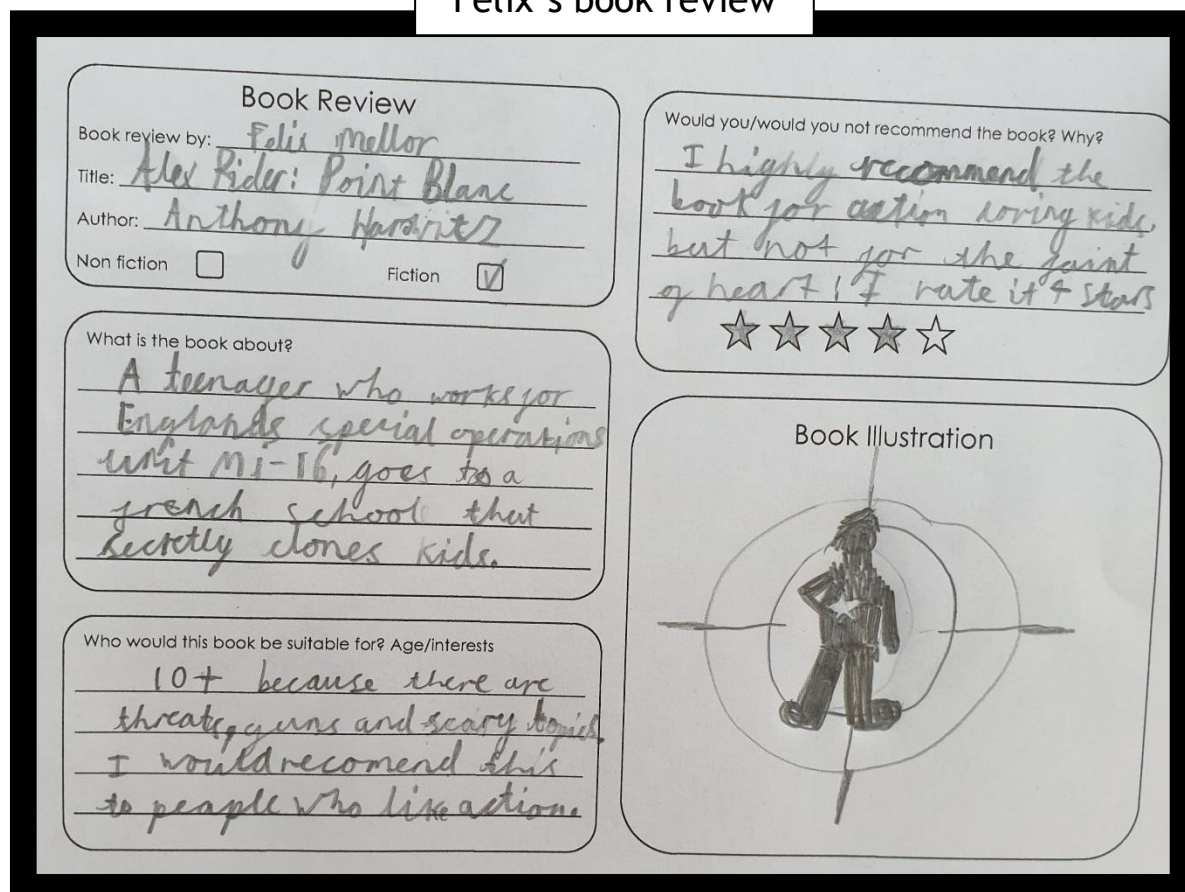 Felix's book review
Book Review
Book review by: Felix Mellor
Title: Alex Rider: Point Blanc
Author: Anthony
Non fiction
Fiction
What is the book about?
A teenager who works for
Englands special operations
unit Mi-16, goes to a
french school that
secretly clones kids.
Who would this book be suitable for? Age/interests
10+ because there are
threats, guns and scary topics.
I would recomend this
to peaple who like action.
Would you/would you not recommend the book? Why?
I highly recommend the
book for action loving kids,
but not for the faint
of heart! I rate it 4 stars
Book Illustration